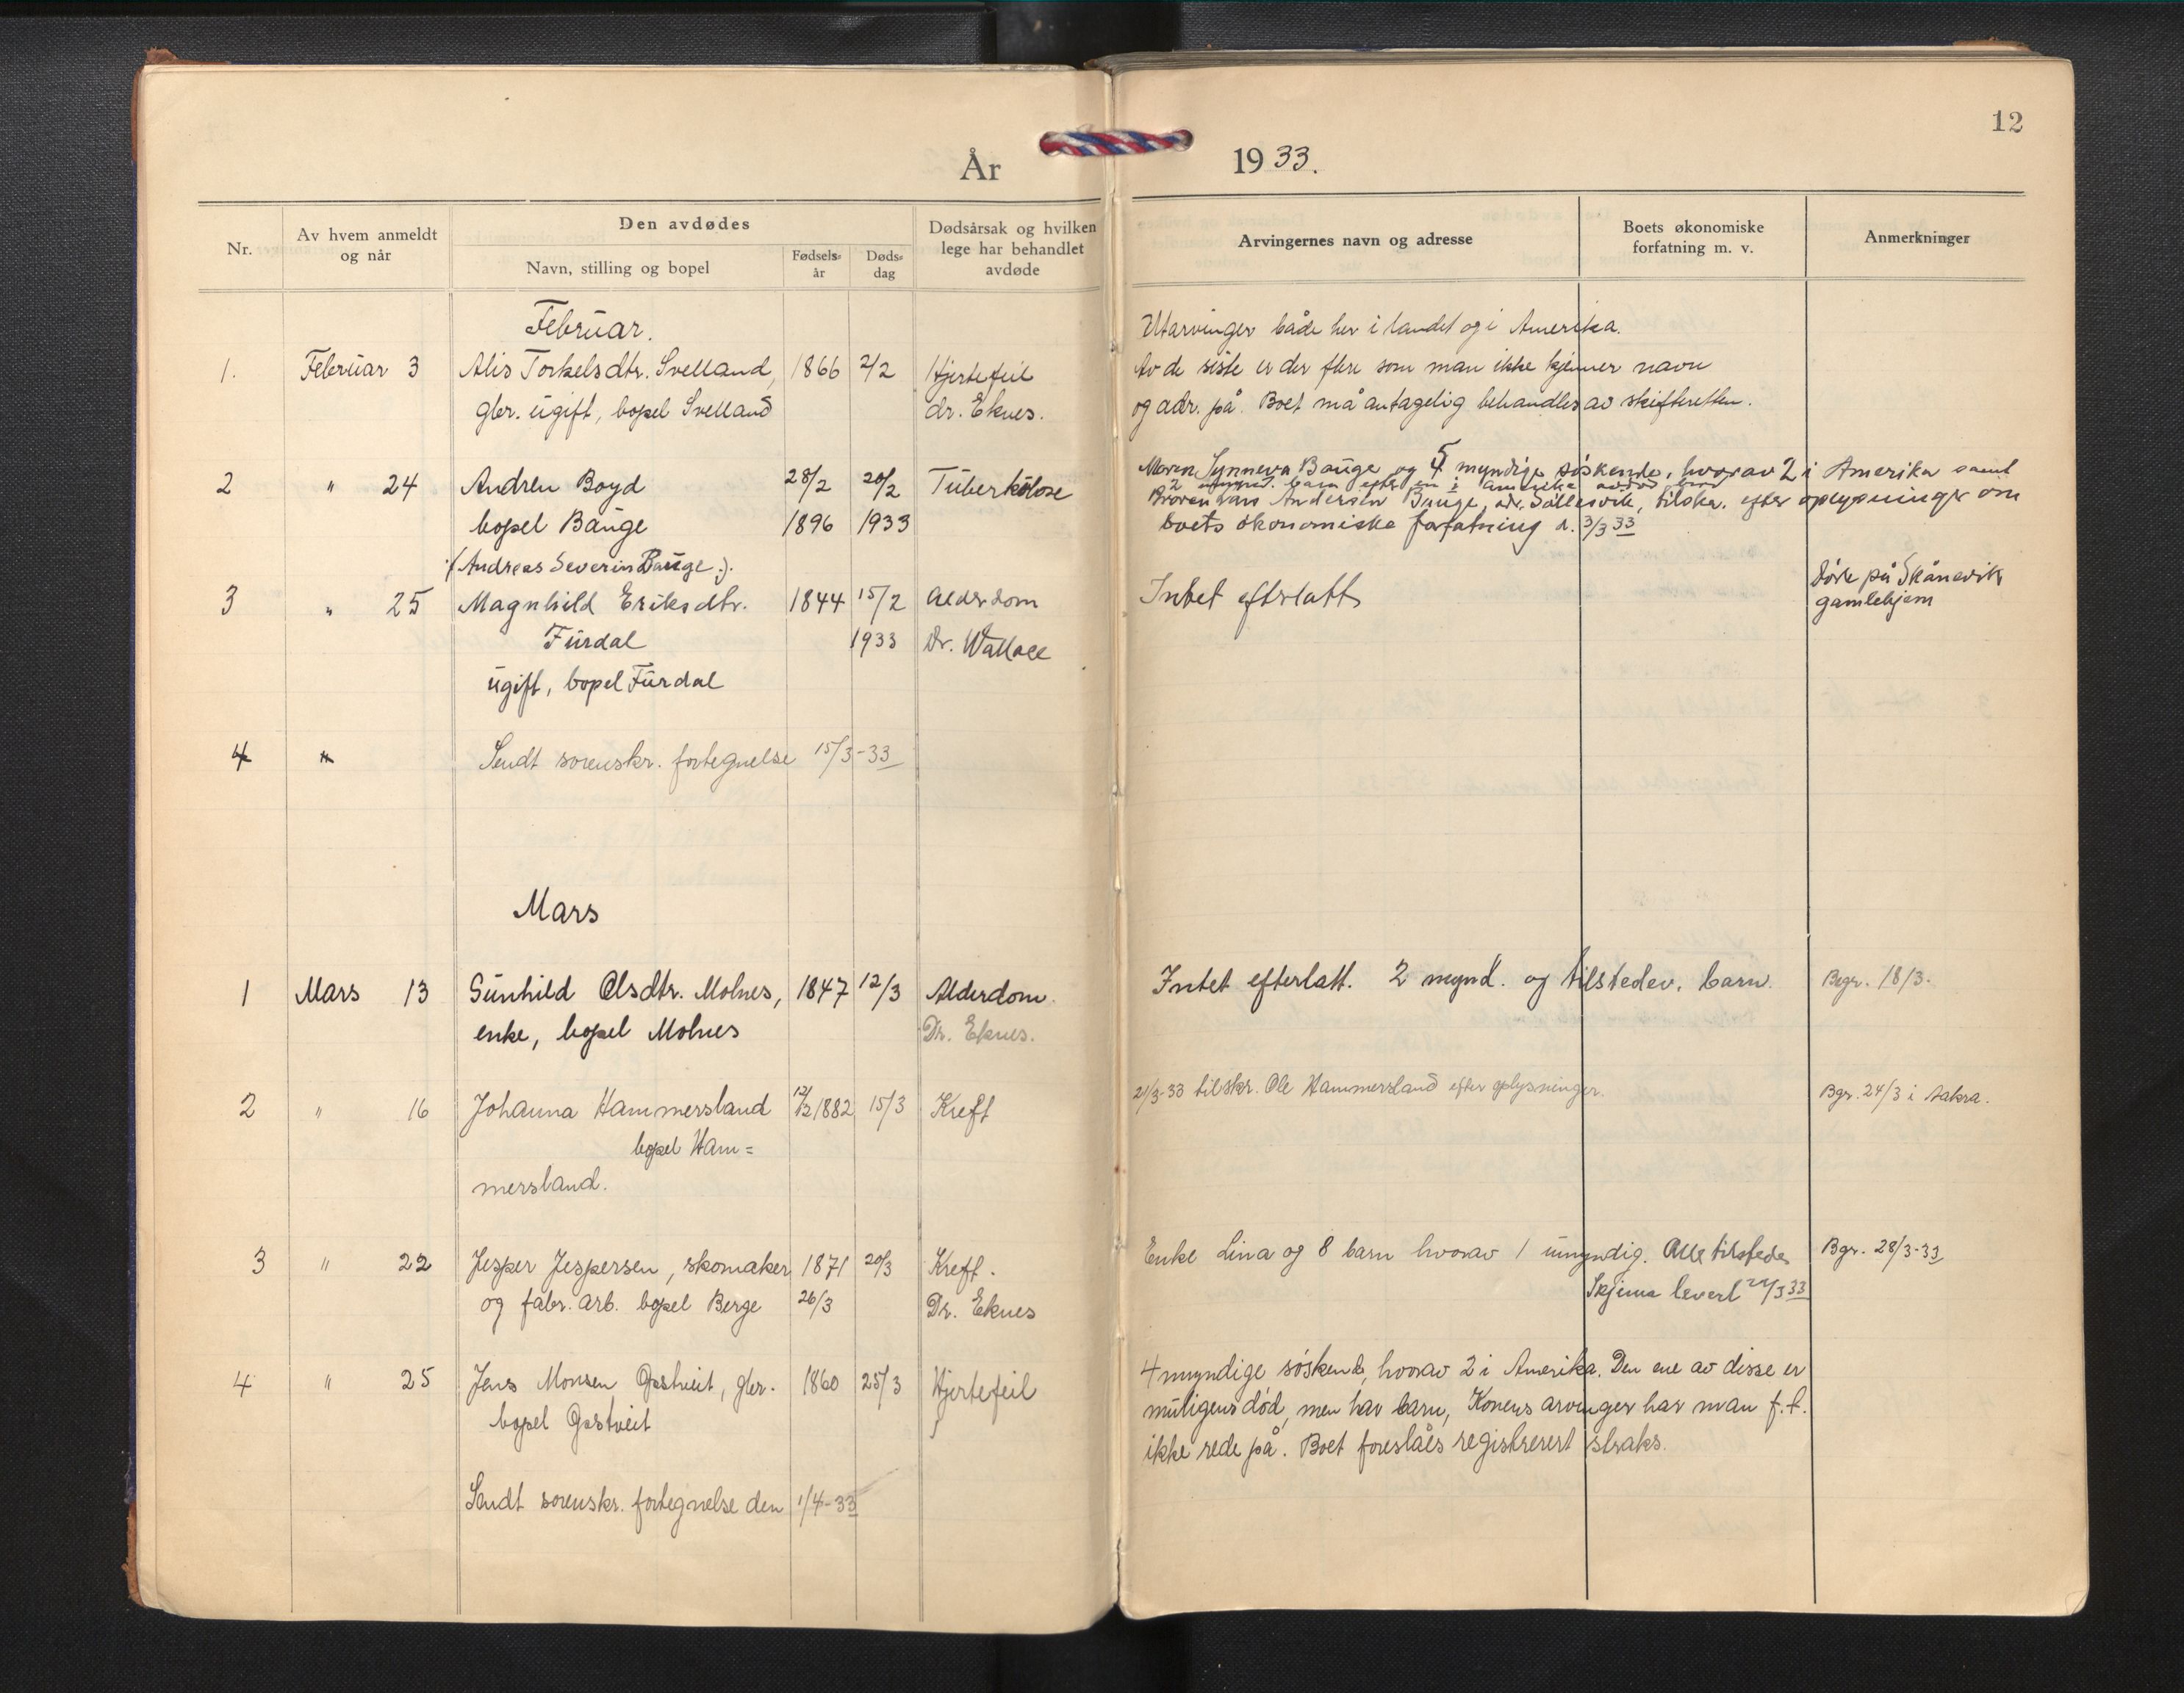 12
År 1933.
Nr.
Av hvem anmeldt
og når
Den avdødes
Navn, stilling og bopel
Fødsels-
år
Døds-
dag
Dødsårsak og hvilken
lege har behandlet
avdøde
Arvingernes navn og adresse
Boets økonomiske
forfatning m. v.
Anmerkninger
Februar.
Utarvinger både her i landet og i Amerika.
1. Februar 3 Alis Torkelsdtr. Svelland, 1866 2/2 Hjertefeil
Av de siste er der flere som man ikke kjenner navn
gbr. ugift, bopel Svelland dr. Eknes.
og adr. på. Boet må antagelig behandles av skifteretten.
2 " 24 Andrew Boyd 28/2 20/2 Tuberkulose
Maren Synneva Bauge og 5 myndige søskende, hvorav 2 i Amerika samt
2 barn efter en i Amerika avdød bror
bopel Bauge 1896 1933
Broren Lars Andersen Bauge, adr. tilskr. efter oplysninger om
boets økonomiske forfatning d. 3/3 33
(Andreas Severin Bauge).
3 " 25 Magnhild Eriksdtr. 1844 15/2 Alderdom
Intet efterlatt
Døde på Skånevik
gamlehjem
Furdal 1933 Dr. Wallace
ugift, bopel Furdal
4 "
Sendt sorenskr. fortegnelse 15/3-33
Mars
1 Mars 13 Gunhild Olsdtr. Molnes, 1847 12/3 Alderdom.
Intet efterlatt. 2 mynd. og tilstedev. barn. Begr. 18/3.
enke, bopel Molnes Dr. Eknes.
2 " 16 Johanna Hammersland 1882 15/3 Kreft
21/3-33 tilskr. Ole Hammersland efter oplysninger. Bgr. 24/3 i Aakra.
bopel Ham=
mersland.
3 " 22 Jesper Jespersen, skomaker 1871 20/3 Kreft.
Enke Lina og 8 barn hvorav 1 umyndig. Alle tilstede Bgr. 28/3-33
og fabr. arb. bopel Berge 26/3 Dr. Eknes
Skjema levert 22/3 33
4 " 25 Jens Monsen Gjestveit, gbr. 1860 25/3 Hjertefeil
4 myndige søskende, hvorav 2 i Amerika. Den ene av disse er
bopel Gjestveit
muligens død, men har barn, Konens arvinger har man f. t.
ikke rede på. Boet foreslåes registrert straks.
Sendt sorenskr. fortegnelse den 1/4-33